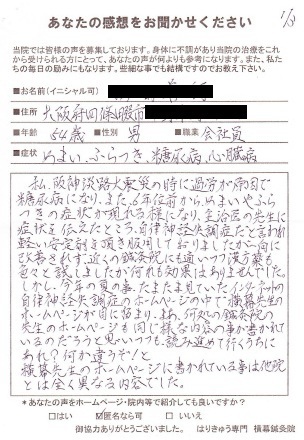 1/3
あなたの感想をお聞かせください
当院では皆様の声を募集しております。身体に不調があり当院の治療をこれ
から受けられる方にとって、あなたの声が何よりも参考になります。また、私た
ちの毎日の励みにもなります。些細な事でも結構ですのでお教え下さい。
■お名前(イニシャル可)
■住所 大阪府四條畷市
■年齢 54歳 ■性別 男 ■職業 会社員
■症状 めまい、ふらつき、糖尿病、心臓病
私、阪神淡路大震災の時に過労が原因で
糖尿病になり、また、6年位前からめまいやふら
つきの症状が現れる様になり、主治医の先生に
症状を伝えたところ、自律神経失調症だと言われ
軽い安定剤を頂き服用しておりましたが一向に
改善されず、近くの鍼灸院にも通いつつ漢方薬も
色々と試しましたが何れも効果はありませんでした。
しかし、今年の夏の事、たまたま見ていたインターネットの
自律神経失調症のホームページの中で横幕先生の
ホームページが目に留まり、まぁ、何処の鍼灸院の
先生のホームページも同じ様な内容の事が書かれて
いるのだろうと思いつつも、読み進めて行くうちに
あれ?何か違うぞ!と
横幕先生のホームページに書かれている事は他院
とは全く異なる内容でした。
*あなたの声をホームページ・院内等で紹介しても良いですか?
□はい ☑匿名なら可 □いいえ
御協力ありがとうございました。 はりきゅう専門 横幕鍼灸院